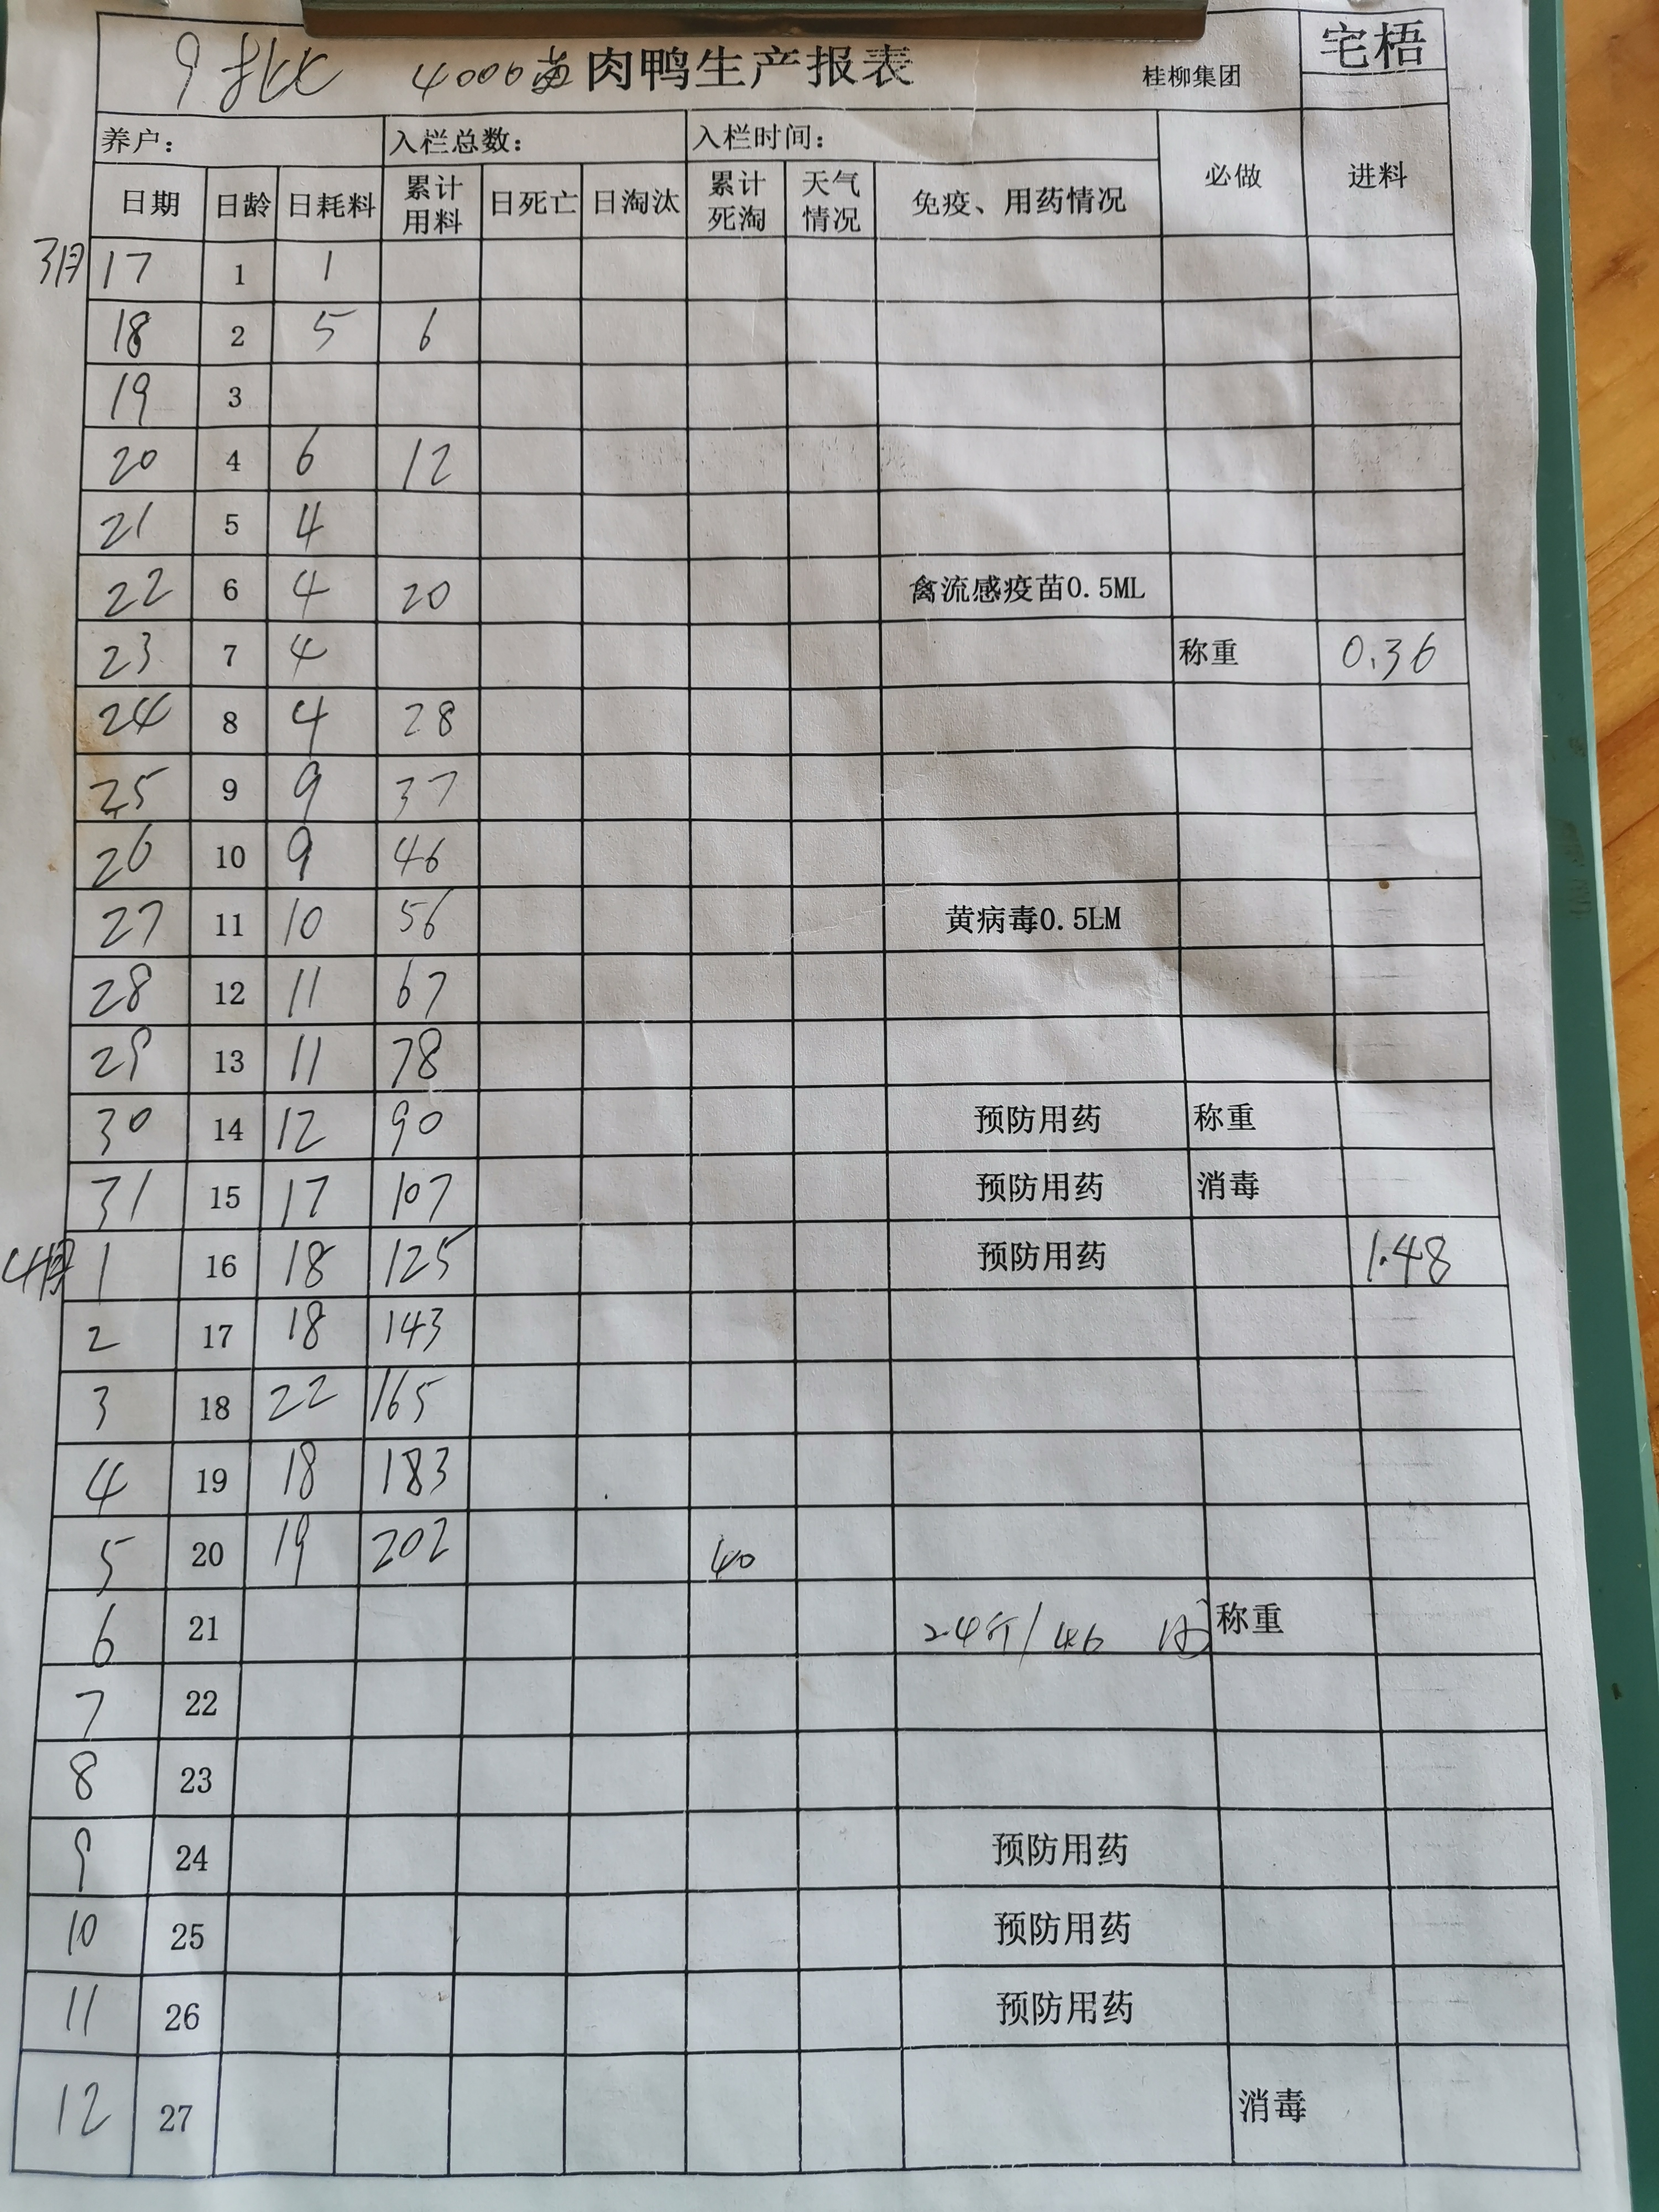 9批 4000苗 肉鸭生产报表 桂柳集团 宅梧
养户： 入栏总数： 入栏时间： 必做 进料
日期 日龄 日耗料 累计用料 日死亡 日淘汰 累计死淘 天气情况 免疫、用药情况
3月 17 1 1
18 2 5 6
19 3
20 4 6 12
21 5 4
22 6 4 20 禽流感疫苗0.5ML
23 7 4 称重 0.36
24 8 4 28
25 9 9 37
26 10 9 46
27 11 10 56 黄病毒0.5LM
28 12 11 67
29 13 11 78
30 14 12 90 预防用药 称重
31 15 17 107 预防用药 消毒
4月 1 16 18 125 预防用药 1.48
2 17 18 143
3 18 22 165
4 19 18 183
5 20 19 202 40
6 21 24斤/46 称重
7 22
8 23
9 24 预防用药
10 25 预防用药
11 26 预防用药
12 27 消毒